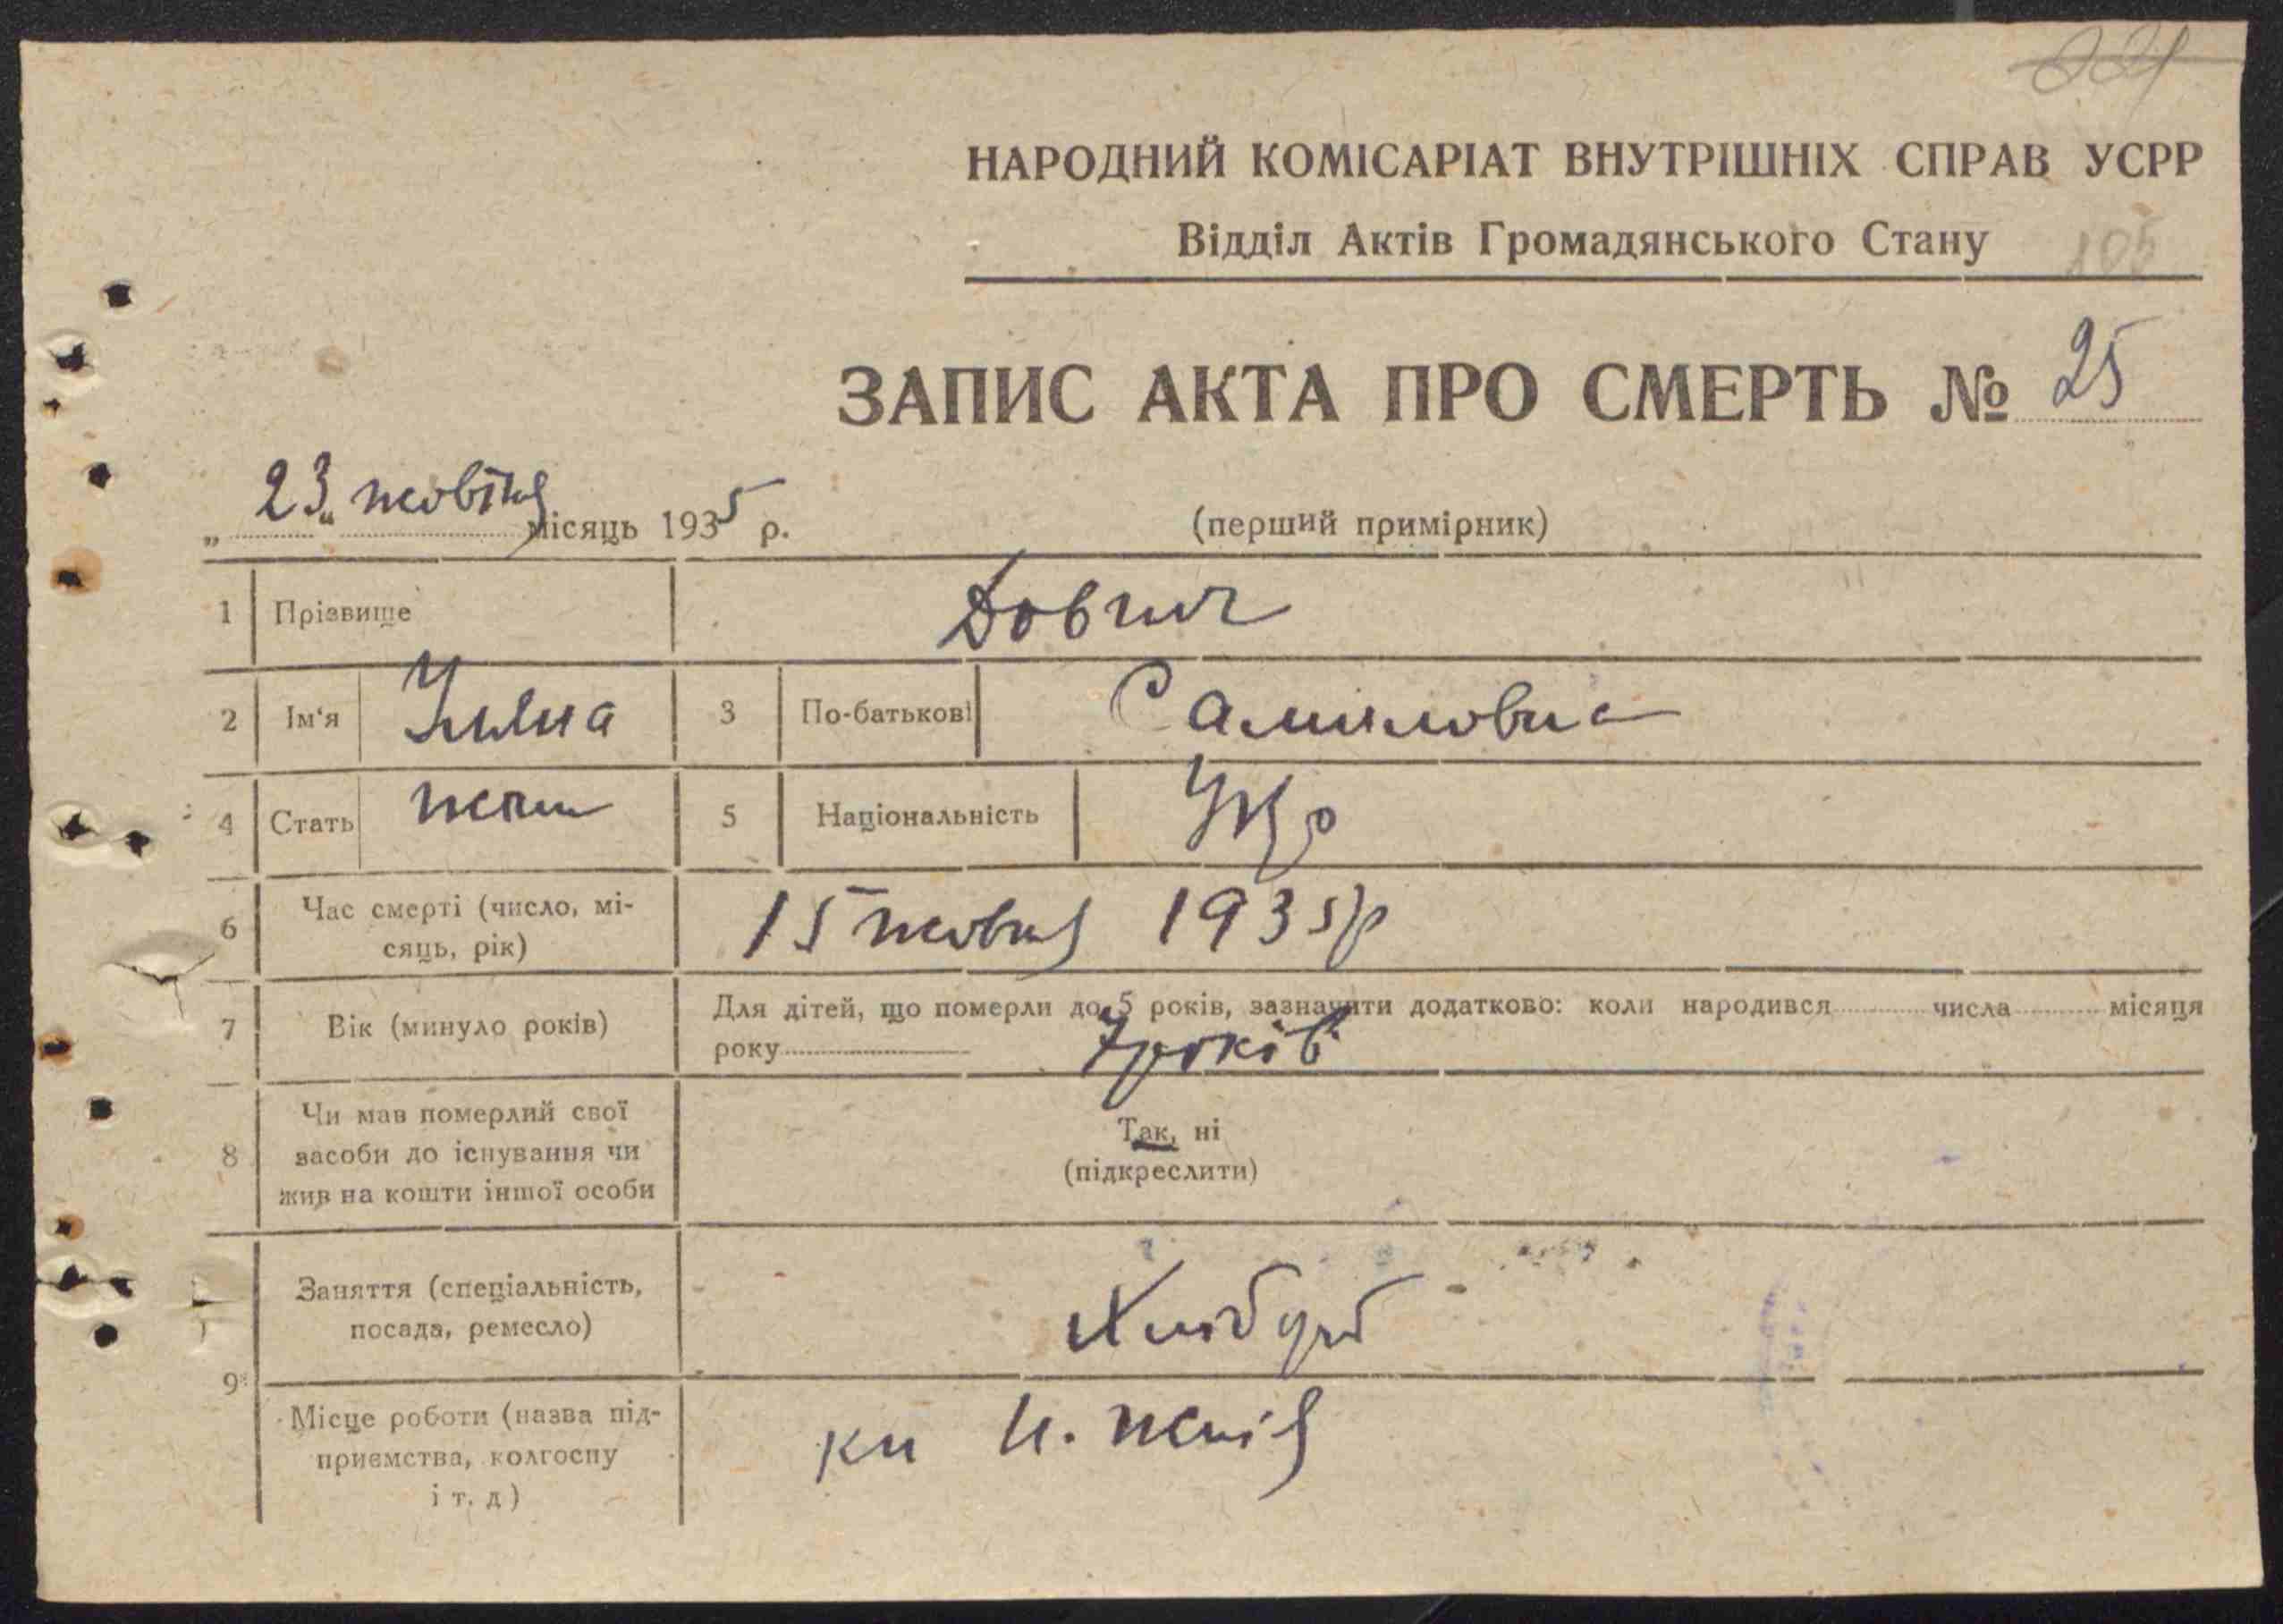 НАРОДНИЙ КОМІСАРІАТ ВНУТРІШНІХ СПРАВ УСРР
Відділ Актів Громадянського Стану
105
ЗАПИС АКТА ПРО СМЕРТЬ № 25
„23" жовтня місяць 1935 р.
(перший примірник)
1 Прізвище Довгич
2 Ім'я 3 По-батькові
4 Стать жін 5 Національність Укр
6 Час смерті (число, мі-
сяць, рік) 15 жовтня 1935 р
7 Вік (минуло років) Для дітей, що померли до 5 років, зазначити додатково: коли народився числа місяця
року 7 років
8 Чи мав померлий свої
засоби до існування чи
жив на кошти іншої особи
Так, ні
(підкреслити)
9 Заняття (спеціальність,
посада, ремесло)
Місце роботи (назва під-
приємства, колгоспу
і т. д)